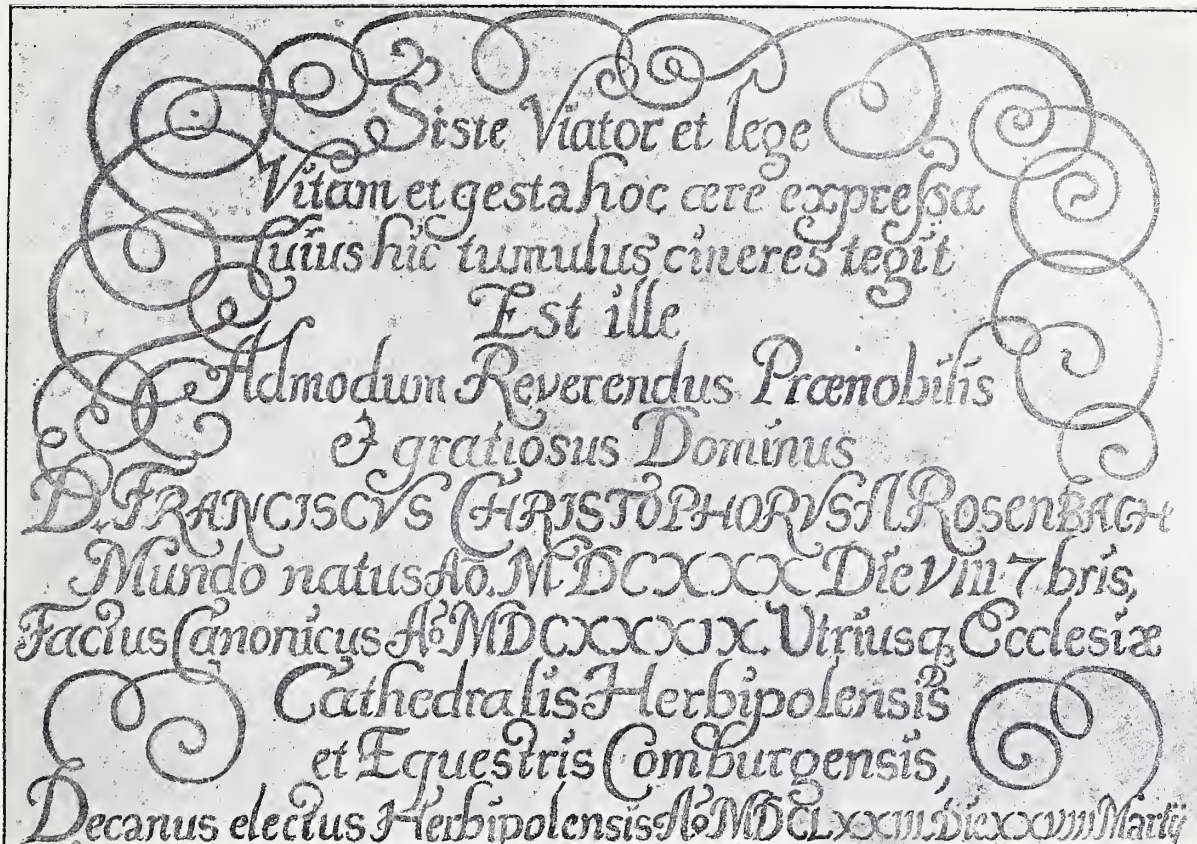 Siste Viator et lege
Vitam et gesta hoc ære expreſsa
Cuius hic tumulus cineres tegit
Est ille
Admodum Reverendus Prænobilis
& gratiosus Dominus
D. FRANCISCVS CHRISTOPHORVS A RosenBACH
Mundo natus Ao. MDCXXX Die VIII 7bris,
Factus Canonicus Ao. MDCXXXIX. Utriusq3 Ecclesiæ
Cathedralis Herbipolensis
et Equestris Comburgensis,
Decanus electus Herbipolensis Ao. MDCLXXIII. Die XXVIII Martij